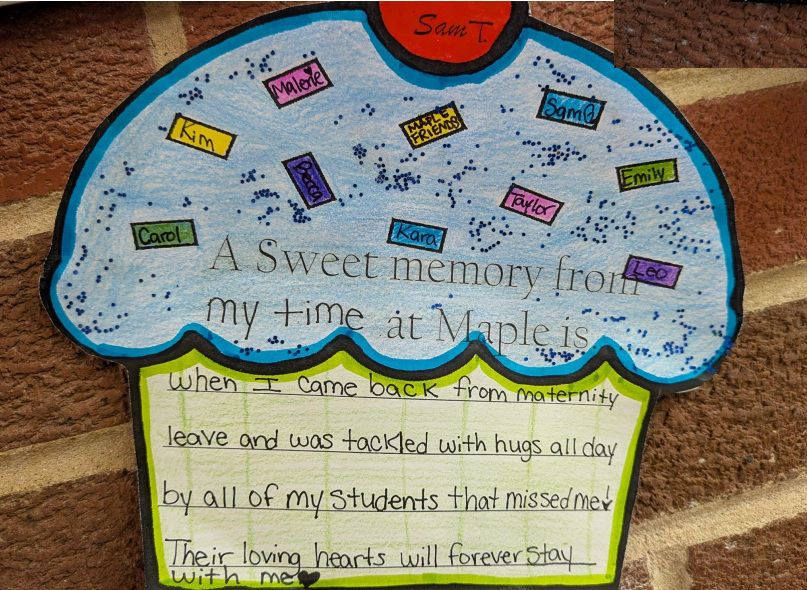 Sam T.
Malerie
Sam B
Kim
MAPLE FRIENDS
Becca
Emily
Taylor
Carol
Kara
Leo
A Sweet memory from
my time at Maple is
when I came back from maternity
leave and was tackled with hugs all day
by all of my students that missed me!
Their loving hearts will forever stay
with me